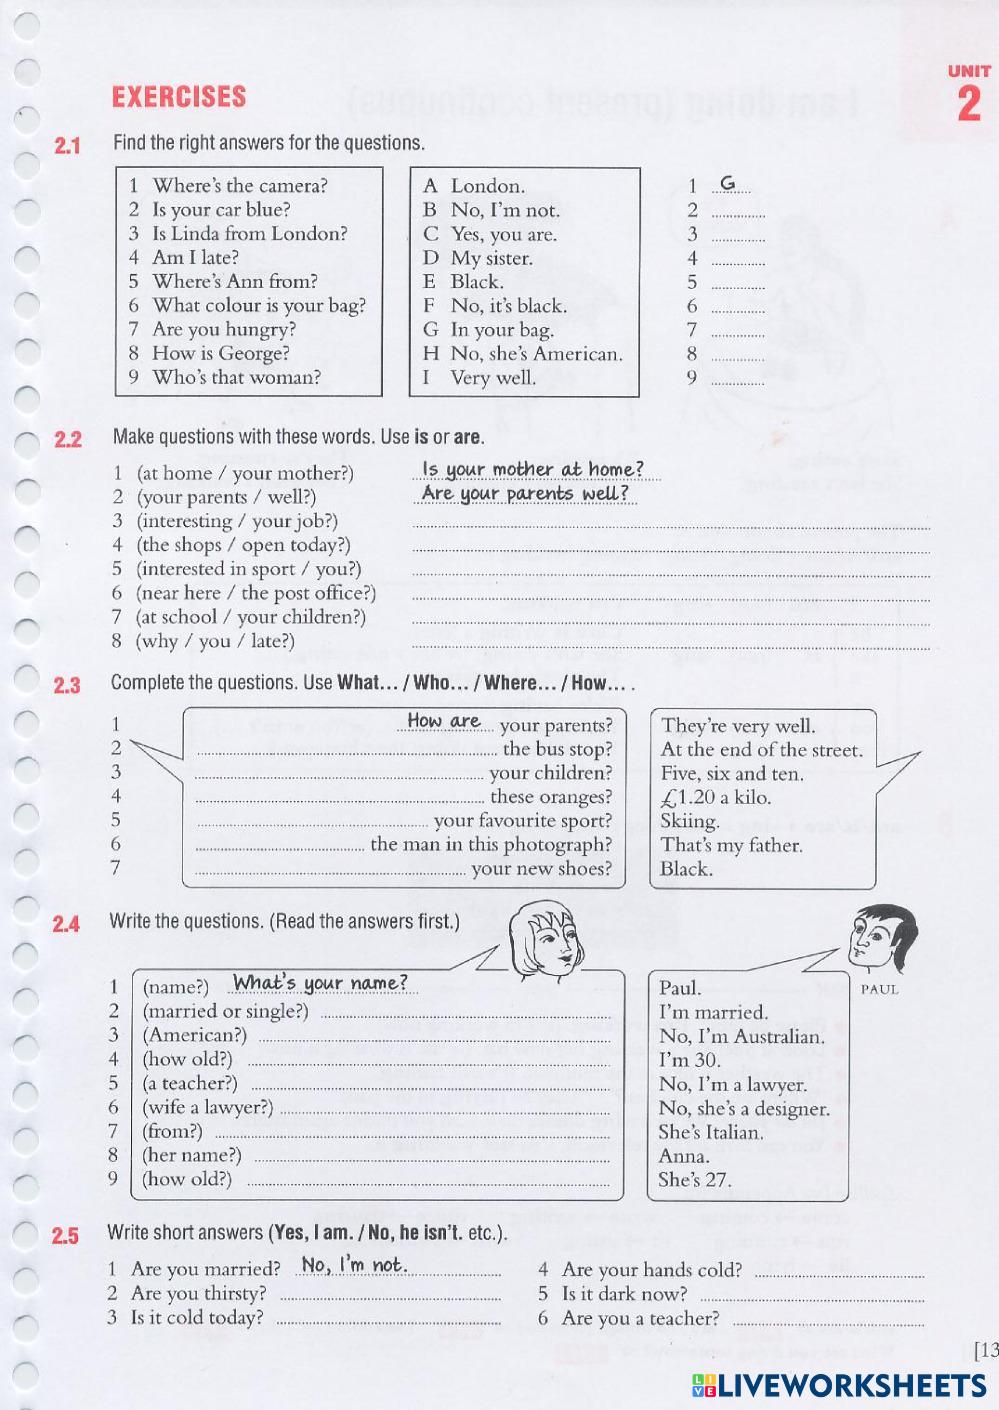 UNIT
2
EXERCISES
2.1 Find the right answers for the questions.
1 Where's the camera?
2 Is your car blue?
3 Is Linda from London?
4 Am I late?
5 Where's Ann from?
6 What colour is your bag?
7 Are you hungry?
8 How is George?
9 Who's that woman?
A London.
B No, I'm not.
C Yes, you are.
D My sister.
E Black.
F No, it's black.
G In your bag.
H No, she's American.
I Very well.
1 G
2
3
4
5
6
7
8
9
2.2 Make questions with these words. Use is or are.
1 (at home / your mother?) Is your mother at home?
2 (your parents / well?) Are your parents well?
3 (interesting / your job?)
4 (the shops / open today?)
5 (interested in sport / you?)
6 (near here / the post office?)
7 (at school / your children?)
8 (why / you / late?)
2.3 Complete the questions. Use What... / Who... / Where... / How... .
1 How are your parents?
2 the bus stop?
3 your children?
4 these oranges?
5 your favourite sport?
6 the man in this photograph?
7 your new shoes?
They're very well.
At the end of the street.
Five, six and ten.
£1.20 a kilo.
Skiing.
That's my father.
Black.
2.4 Write the questions. (Read the answers first.)
1 (name?) What's your name?
2 (married or single?)
3 (American?)
4 (how old?)
5 (a teacher?)
6 (wife a lawyer?)
7 (from?)
8 (her name?)
9 (how old?)
Paul.
I'm married.
No, I'm Australian.
I'm 30.
No, I'm a lawyer.
No, she's a designer.
She's Italian.
Anna.
She's 27.
PAUL
2.5 Write short answers (Yes, I am. / No, he isn't. etc.).
1 Are you married? No, I'm not.
2 Are you thirsty?
3 Is it cold today?
4 Are your hands cold?
5 Is it dark now?
6 Are you a teacher?
[13
LIVEWORKSHEETS